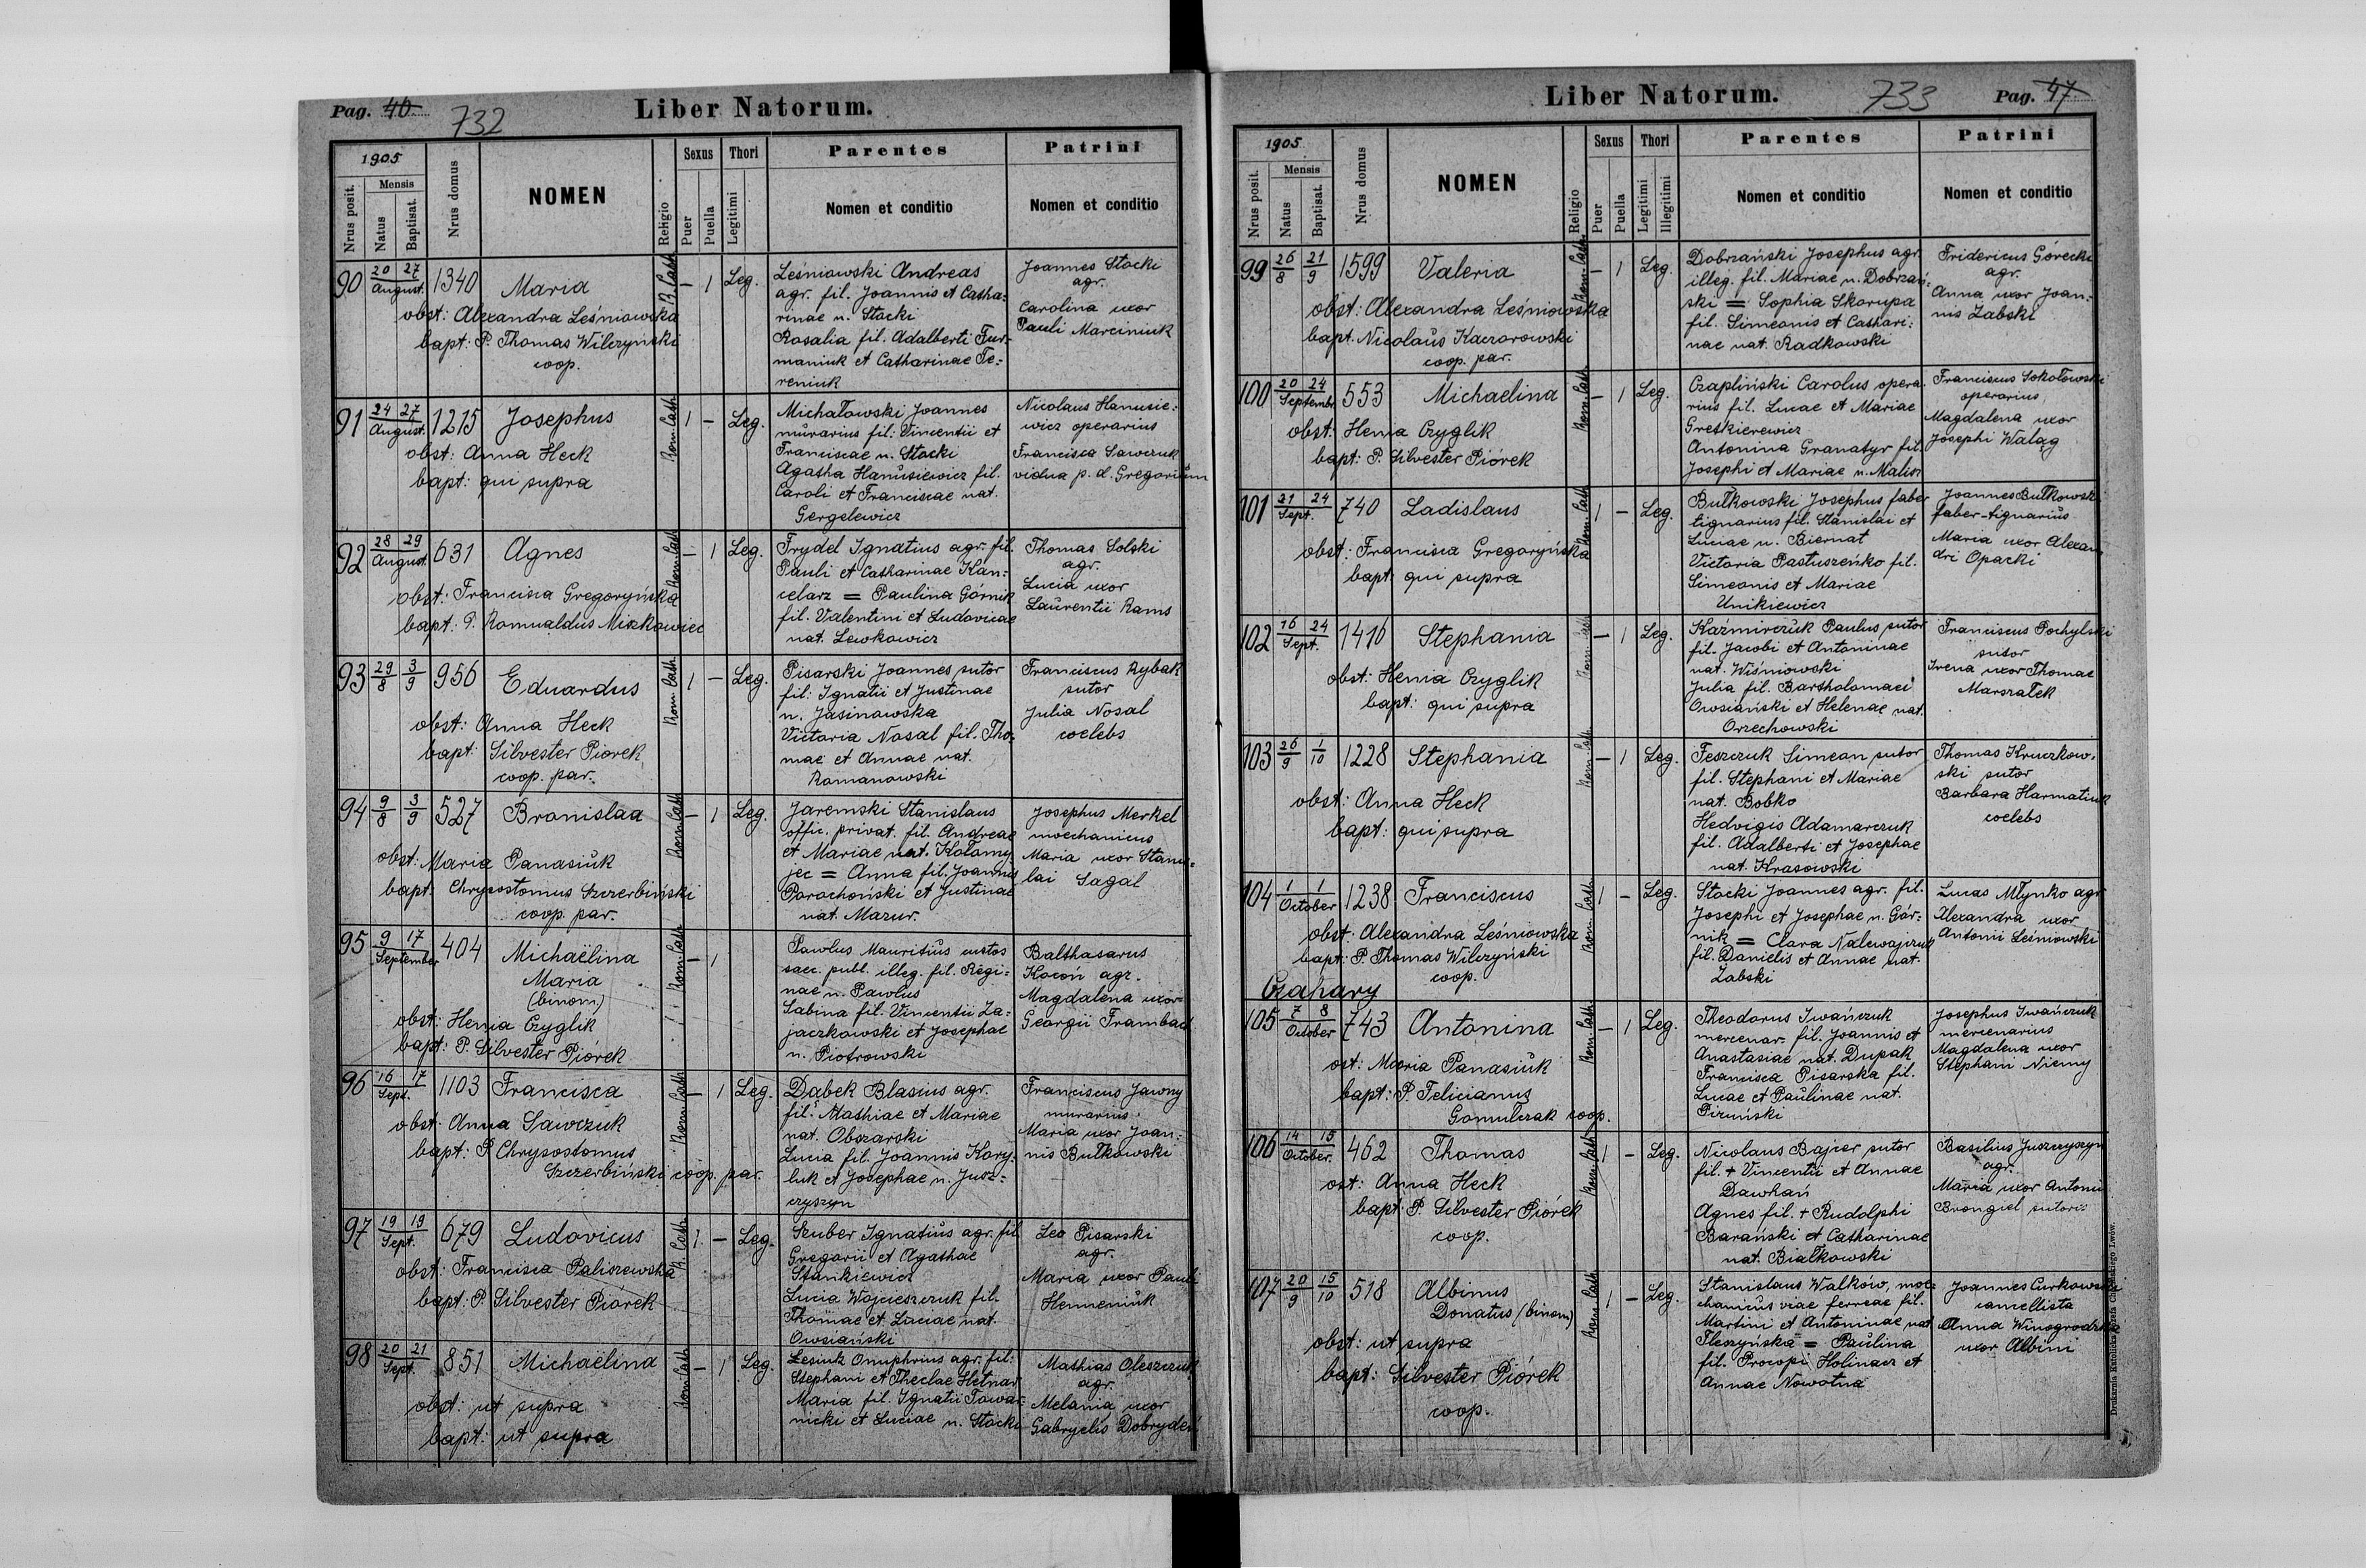 Pag. 46
732
Liber Natorum.
1905
Nrus posit.
Mensis
Natus
Baptisat.
Nrus domus
NOMEN
Religio
Sexus
Puer
Puella
Thori
Legitimi
Parentes
Nomen et conditio
Patrini
Nomen et conditio
90 20 27 August. 1340 Maria R. Cath. – 1 Leg.
obst: Alexandra Leśniowska
bapt: P. Thomas Wilczyński
coop.
Leśniowski Andreas
agr. fil. Joannis et Catha:
rinae n. Stocki
Rosalia fil. Adalberti Fur-
maniuk et Catharinae Te:
reniuk
Joannes Stocki
agr.
Carolina uxor
Pauli Marciniuk
91 24 27 August. 1215 Josephus Rom. Cath. 1 – Leg.
obst: Anna Heck
bapt: qui supra
Michałowski Joannes
murarius fil: Vincentii et
Franciscae n. Stocki
Agatha Hanusiewicz fil.
Caroli et Franciscae nat.
Gergelewicz
Nicolaus Hanusie:
wicz operarius
Francisca Sawczuk
vidua p. d. Gregorium
92 28 29 August. 631 Agnes Rom. Cath. – 1 Leg.
obst: Francisca Gregoryńska
bapt: P. Romualdus Mizkowiec
Frydel Ignatius agr. fil.
Pauli et Catharinae Kan:
celarz = Paulina Gornik
fil. Valentini et Ludovicae
nat. Lewkowicz
Thomas Solski
agr.
Lucia uxor
Laurentii Rams
93 29/8 3/9 956 Eduardus Rom. Cath. 1 – Leg.
obst: Anna Heck
bapt: Silvester Piorek
coop. par.
Pisarski Joannes sutor
fil: Ignatii et Justinae
n. Jasinowska
Victoria Nosal fil. Tho:
mae et Annae nat.
Romanowski
Franciscus Rybak
sutor
Julia Nosal
coelebs
94 9/8 3/9 527 Bronislaa Rom. Cath. – 1 Leg.
obst: Maria Panasiuk
bapt: Chrysostomus Szczerbiński
coop. par.
Jaremski Stanislaus
offic. privat. fil. Andreae
et Mariae nat. Kołomy
jec = Anna fil. Joannis
Parochoński et Justinae
nat. Mazur.
Josephus Merkel
mechanicus
Maria uxor Stanis=
lai Sagal
95 9 17 September 404 Michaëlina Rom. Cath. – 1
Maria
(binom.)
obst: Henia Czyglik
bapt: P. Silvester Piórek
Pawlus Mauritius custos
saec. publ. illeg. fil. Regi:
nae n. Pawlus
Sabina fil. Vincentii Za-
jaczkowski et Josephae
n. Piotrowski
Balthasarus
Kocoń agr.
Magdalena uxor
Georgii Frambach
96 16 17 Sept. 1103 Francisca Rom. Cath. – 1 Leg.
obst: Anna Sawczuk
bapt: P. Chrysostomus
Szczerbiński coop. par.
Dabek Blasius agr.
fil. Mathiae et Mariae
nat. Obszarski
Lucia fil. Joannis Kory:
luk et Josephae n. Jusz:
czyszyn
Franciscus Jawny
murarius
Maria uxor Joan:
nis Bułkowski
97 19 19 Sept. 679 Ludovicus R. Cath. 1 – Leg.
obst: Francisca Paliszewska
bapt: P. Silvester Piorek
Szuber Ignatius agr. fil.
Gregorii et Agathae
Stankiewicz
Lucia Wojcieszczuk fil.
Thomae et Luciae nat.
Owsiański
Leo Pisarski
agr.
Maria uxor Pauli
Henneniuk
98 20 21 Sept. 851 Michaëlina Rom. Cath. – 1 Leg.
obst: ut supra
bapt: ut supra
Lesiuk Onuphrius agr. fil:
Stephani et Theclae Hetnar
Maria fil. Ignatii Towar:
nicki et Luciae n. Stocki
Mathias Oleszczuk
agr.
Melania uxor
Gabryelis Dobrydeń
Liber Natorum.
733
Pag. 47
1905
Nrus posit.
Mensis
Natus
Baptisat.
Nrus domus
NOMEN
Religio
Sexus
Puer
Puella
Thori
Legitimi
Illegitimi
Parentes
Nomen et conditio
Patrini
Nomen et conditio
99 26/8 21/9 1599 Valeria Rom. Cath. – 1 Leg.
obst: Alexandra Leśniowska
bapt. Nicolaus Kaczorowski
coop. par.
Dobrzański Josephus agr.
illeg. fil. Mariae n. Dobrzań:
ski = Sophia Skorupa
fil. Simeonis et Cathari:
nae nat. Radkowski
Fridericus Górecki
agr.
Anna uxor Joan:
nis Zabski
100 20 24 Septembr. 553 Michaelina Rom. Cath. – 1 Leg.
obst: Henia Czyglik
bapt: P. Silvester Piórek
Czapliński Carolus opera:
rius fil. Lucae et Mariae
Greskierewicz
Antonina Granatyr fil.
Josephi et Mariae n. Malisz
Franciscus Sokołowski
operarius
Magdalena uxor
Josephi Waląg
101 21 24 Sept. 740 Ladislaus Rom. Cath. 1 – Leg.
obst: Francisca Gregoryńska
bapt: qui supra
Bułkowski Josephus faber
lignarius fil. Stanislai et
Luciae n. Biernat
Victoria Pastuszeńko fil.
Simeonis et Mariae
Unikiewicz
Joannes Bułkowski
faber-lignarius
Maria uxor Alexan
dri Opacki
102 16 24 Sept. 1416 Stephania Rom. Cath. – 1 Leg.
obst: Henia Czyglik
bapt: qui supra
Kaźmirczuk Paulus sutor
fil. Jacobi et Antoninae
nat. Wiśniowski
Julia fil. Bartholomaei
Owsiański et Helenae nat.
Orzechowski
Franciscus Pochylski
sutor
Irena uxor Thomae
Marszałek
103 26/9 1/10 1228 Stephania Rom. Cath. – 1 Leg.
obst: Anna Heck
bapt: qui supra
Feszczuk Simeon sutor
fil. Stephani et Mariae
nat. Bobko
Hedvigis Adamarczuk
fil. Adalberti et Josephae
nat. Krasowski
Thomas Kruczkow:
ski sutor
Barbara Harmatiuk
coelebs
104 1 1 October 1238 Franciscus Rom. Cath. 1 – Leg.
obst: Alexandra Leśniowska
bapt: P. Thomas Wilczyński
coop.
Stocki Joannes agr. fil.
Josephi et Josephae n. Gór:
nik = Clara Nalewajczuk
fil. Danielis et Annae nat.
Zabski
Lucas Młynko agr
Alexandra uxor
Antonii Leśniowski
Czahary
105 7 8 October 743 Antonina Rom. Cath. – 1 Leg.
ost: Maria Panasiuk
bapt: P. Felicianus
Gomulczak coop.
Theodorus Iwańczuk
mercenar. fil. Joannis et
Anastasiae nat. Dupak
Francisca Pisarska fil.
Lucae et Paulinae nat.
Piruński
Josephus Iwańczuk
mercenarius
Magdalena uxor
Stephani Niemy
106 14 15 October. 462 Thomas Rom. Cath. 1 – Leg.
ost: Anna Heck
bapt: P. Silvester Piórek
coop.
Nicolaus Bajcer sutor
fil. + Vincentii et Annae
Dawhań
Agnes fil. + Rudolphi
Barański et Catharinae
nat. Białkowski
Basilius Juszczyszyn
agr.
Maria uxor Antonii
Brongiel sutoris
107 20/9 15/10 518 Albinus Rom. Cath. 1 – Leg.
Donatus (binom)
obst: ut supra
bapt: Silvester Piórek
coop.
Stanislaus Walków, me:
chanicus viae ferreae fil.
Martini et Antoninae nat
Fleszyńska = Paulina
fil. Procopi Holinacz et
Annae Nowotna
Joannes Curkowski
cancellista
Anna Winogrodzka
uxor Albini